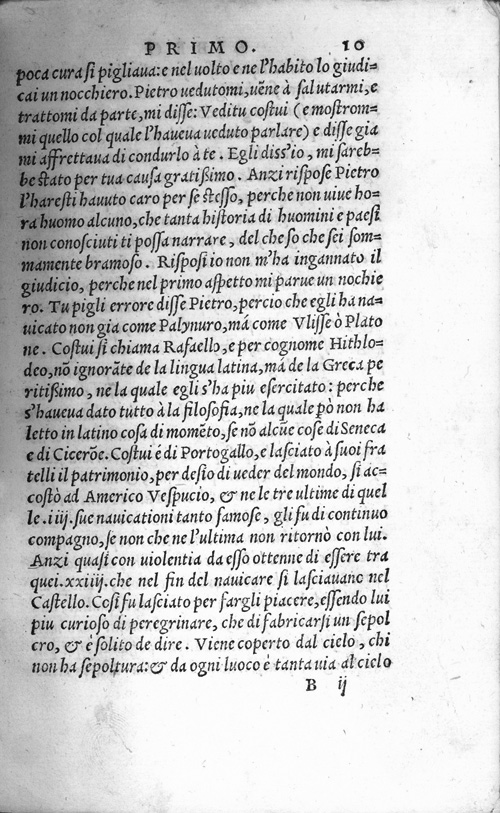 PRIMO. 10
poca cura ſi pigliaua: e nel uolto e ne l'habito lo giudi=
cai un nocchiero. Pietro uedutomi, uẽne à ſalutarmi, e
trattomi da parte, mi diſſe: Veditu coſtui (e moſtrom=
mi quello col quale l'haueua ueduto parlare) e diſſe gia
mi affrettaua di condurlo à te. Egli diss'io, mi ſareb=
be ſtato per tua cauſa gratißimo. Anzi riſpoſe Pietro
l'hareſti hauuto caro per ſe ſteſſo, perche non uiue ho=
ra huomo alcuno, che tanta hiſtoria di huomini e paeſi
non conoſciuti ti poſſa narrare, del che ſo che ſei ſom=
mamente bramoſo. Riſpoſi io non m'ha ingannato il
giudicio, perche nel primo aſpetto mi parue un nochie
ro. Tu pigli errore diſſe Pietro, percio che egli ha na=
uicato non gia come Palynuro, má come Vliſſe ò Plato
ne. Coſtui ſi chiama Rafaello, e per cognome Hithlo=
deo, nõ ignorãte de la lingua latina, má de la Greca pe
ritißimo, ne la quale egli s'ha piu eſercitato: perche
s'haueua dato tutto à la filoſofia, ne la quale pò non ha
letto in latino coſa di momẽto, ſe nõ alcũe coſe di Seneca
e di Cicerõe. Coſtui é di Portogallo, e laſciato à ſuoi fra
telli il patrimonio, per deſio di ueder del mondo, ſi ac=
coſtò ad Americo Veſpucio, & ne le tre ultime di quel
le .iiij. ſue nauicationi tanto famoſe, gli fu di continuo
compagno, ſe non che ne l'ultima non ritornò con lui.
Anzi quaſi con uiolentia da eſſo ottenne di eſſere tra
quei .xxiiij. che nel fin del nauicare ſi laſciauano nel
Caſtello. Coſi fu laſciato per fargli piacere, eſſendo lui
piu curioſo di peregrinare, che di fabricarſi un ſepol
cro, & è ſolito de dire. Viene coperto dal cielo, chi
non ha ſepoltura: & da ogni luoco è tanta uia al cielo
B ij